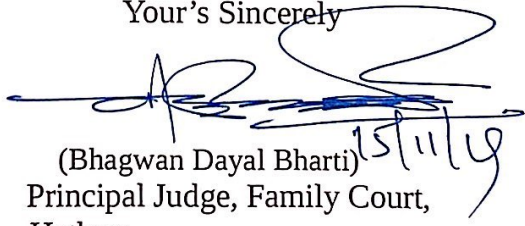 Your's Sincerely
15/11/19
(Bhagwan Dayal Bharti)
Principal Judge, Family Court,